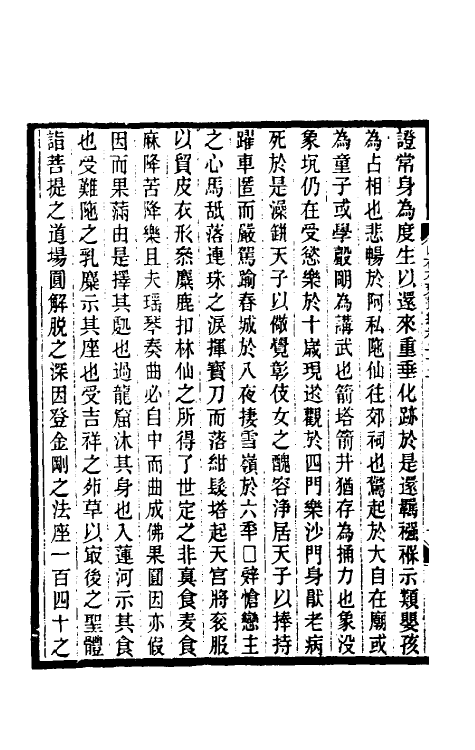 證常身為度生以還來重垂化跡於是還羈襁褓示類嬰孩
為占相也悲暢於阿私陁仙往郊祠也驚起於大自在廟或
為童子或學嚴閑為講武也箭塔箭井猶存為捔力也象没
象坑仍在受慾樂於十歳現逰觀於四門樂沙門身猒老病
死於是澡缾天子以儆覺彰伎女之醜容淨居天子以捧持
躍車匿而嚴駕踰春城於八夜捿雪嶺於六秊□辤愴戀主
之心馬䑛落連珠之淚揮寳刀而落紺髮塔起天宮將衮服
以貿皮衣形叅麋鹿扣林仙之所得了世定之非真食麦食
麻降苦降樂且夫瑶琴奏曲必自中而曲成佛果圓因亦假
因而果滿由是擇其處也過龍窟沐其身也入蓮河示其食
也受難陁之乳麋示其座也受吉祥之茆草以㝡後之聖體
詣菩提之道場圓解脱之深因登金剛之法座一百四十之